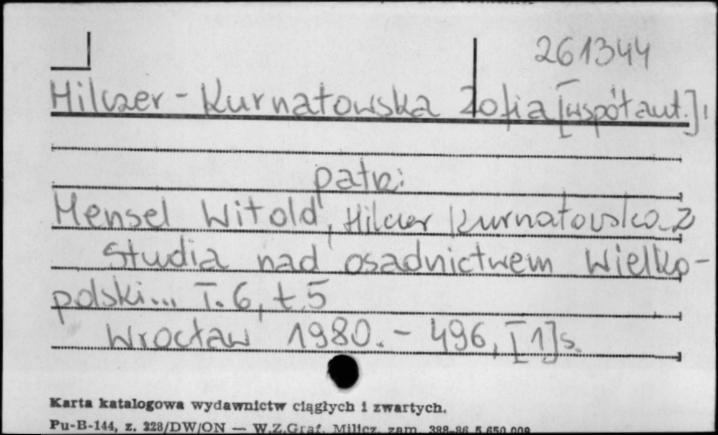 261344
Hilczer-Kurnatowska Zofia [współaut.]
patrz:
Hensel Witold, Hilczer Kurnatowska Z
Studia nad osadnictwem Wielko-
polski... T. 6, t. 5
Wrocław 1980. - 496, [1] s.
Karta katalogowa wydawnictw ciągłych i zwartych.
Pu-B-144, z. 228/DW/ON — W.Z.Graf. Milicz, zam. 388-86 5.650.000